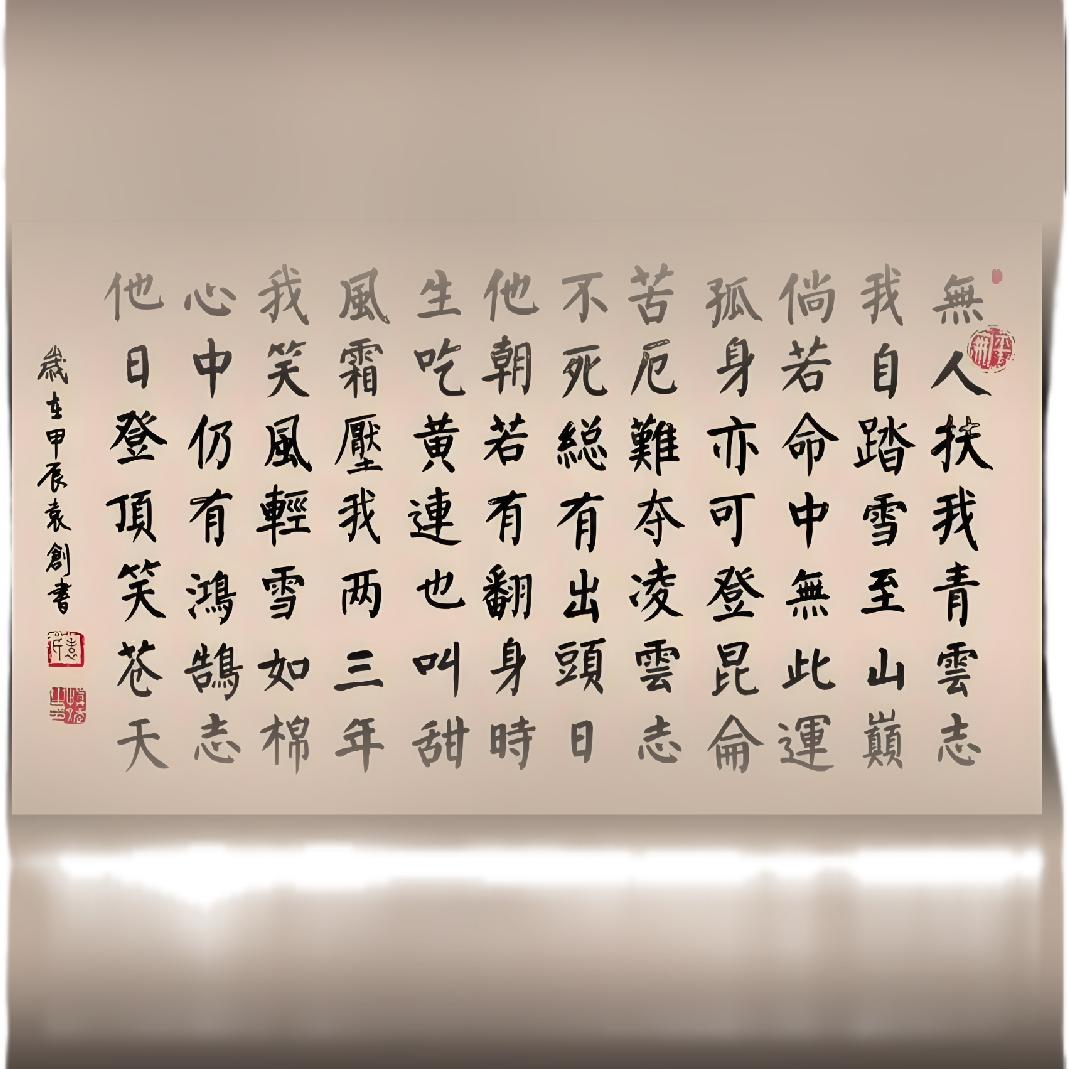 無人扶我青雲志
我自踏雪至山巔
倘若命中無此運
孤身亦可登昆侖
苦厄難夺凌雲志
不死總有出頭日
他朝若有翻身時
生吃黄連也叫甜
風霜壓我两三年
我笑風輕雪如棉
心中仍有鴻鵠志
他日登頂笑苍天
歲在甲辰袁創書